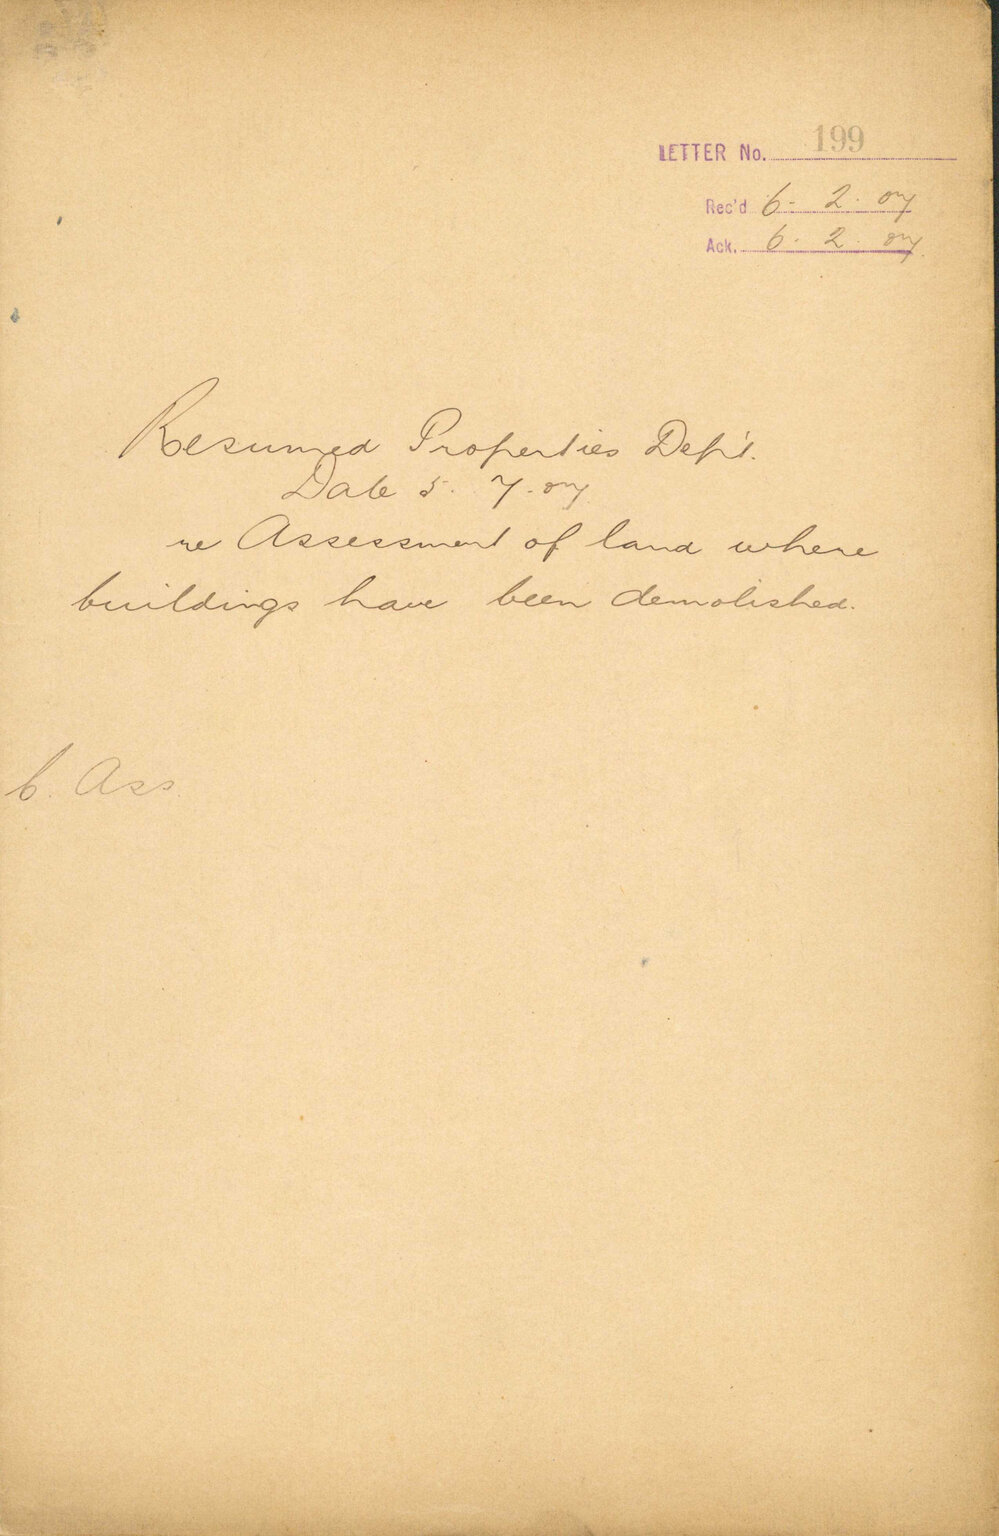 LETTER No. 199
Rec'd 6 - 2 . 07
Ack. 6 . 2 . 07
Resumed Properties Dep't.
Date 5. 7. 07
re Assessment of land where
buildings have been demolished.
C. Ass.